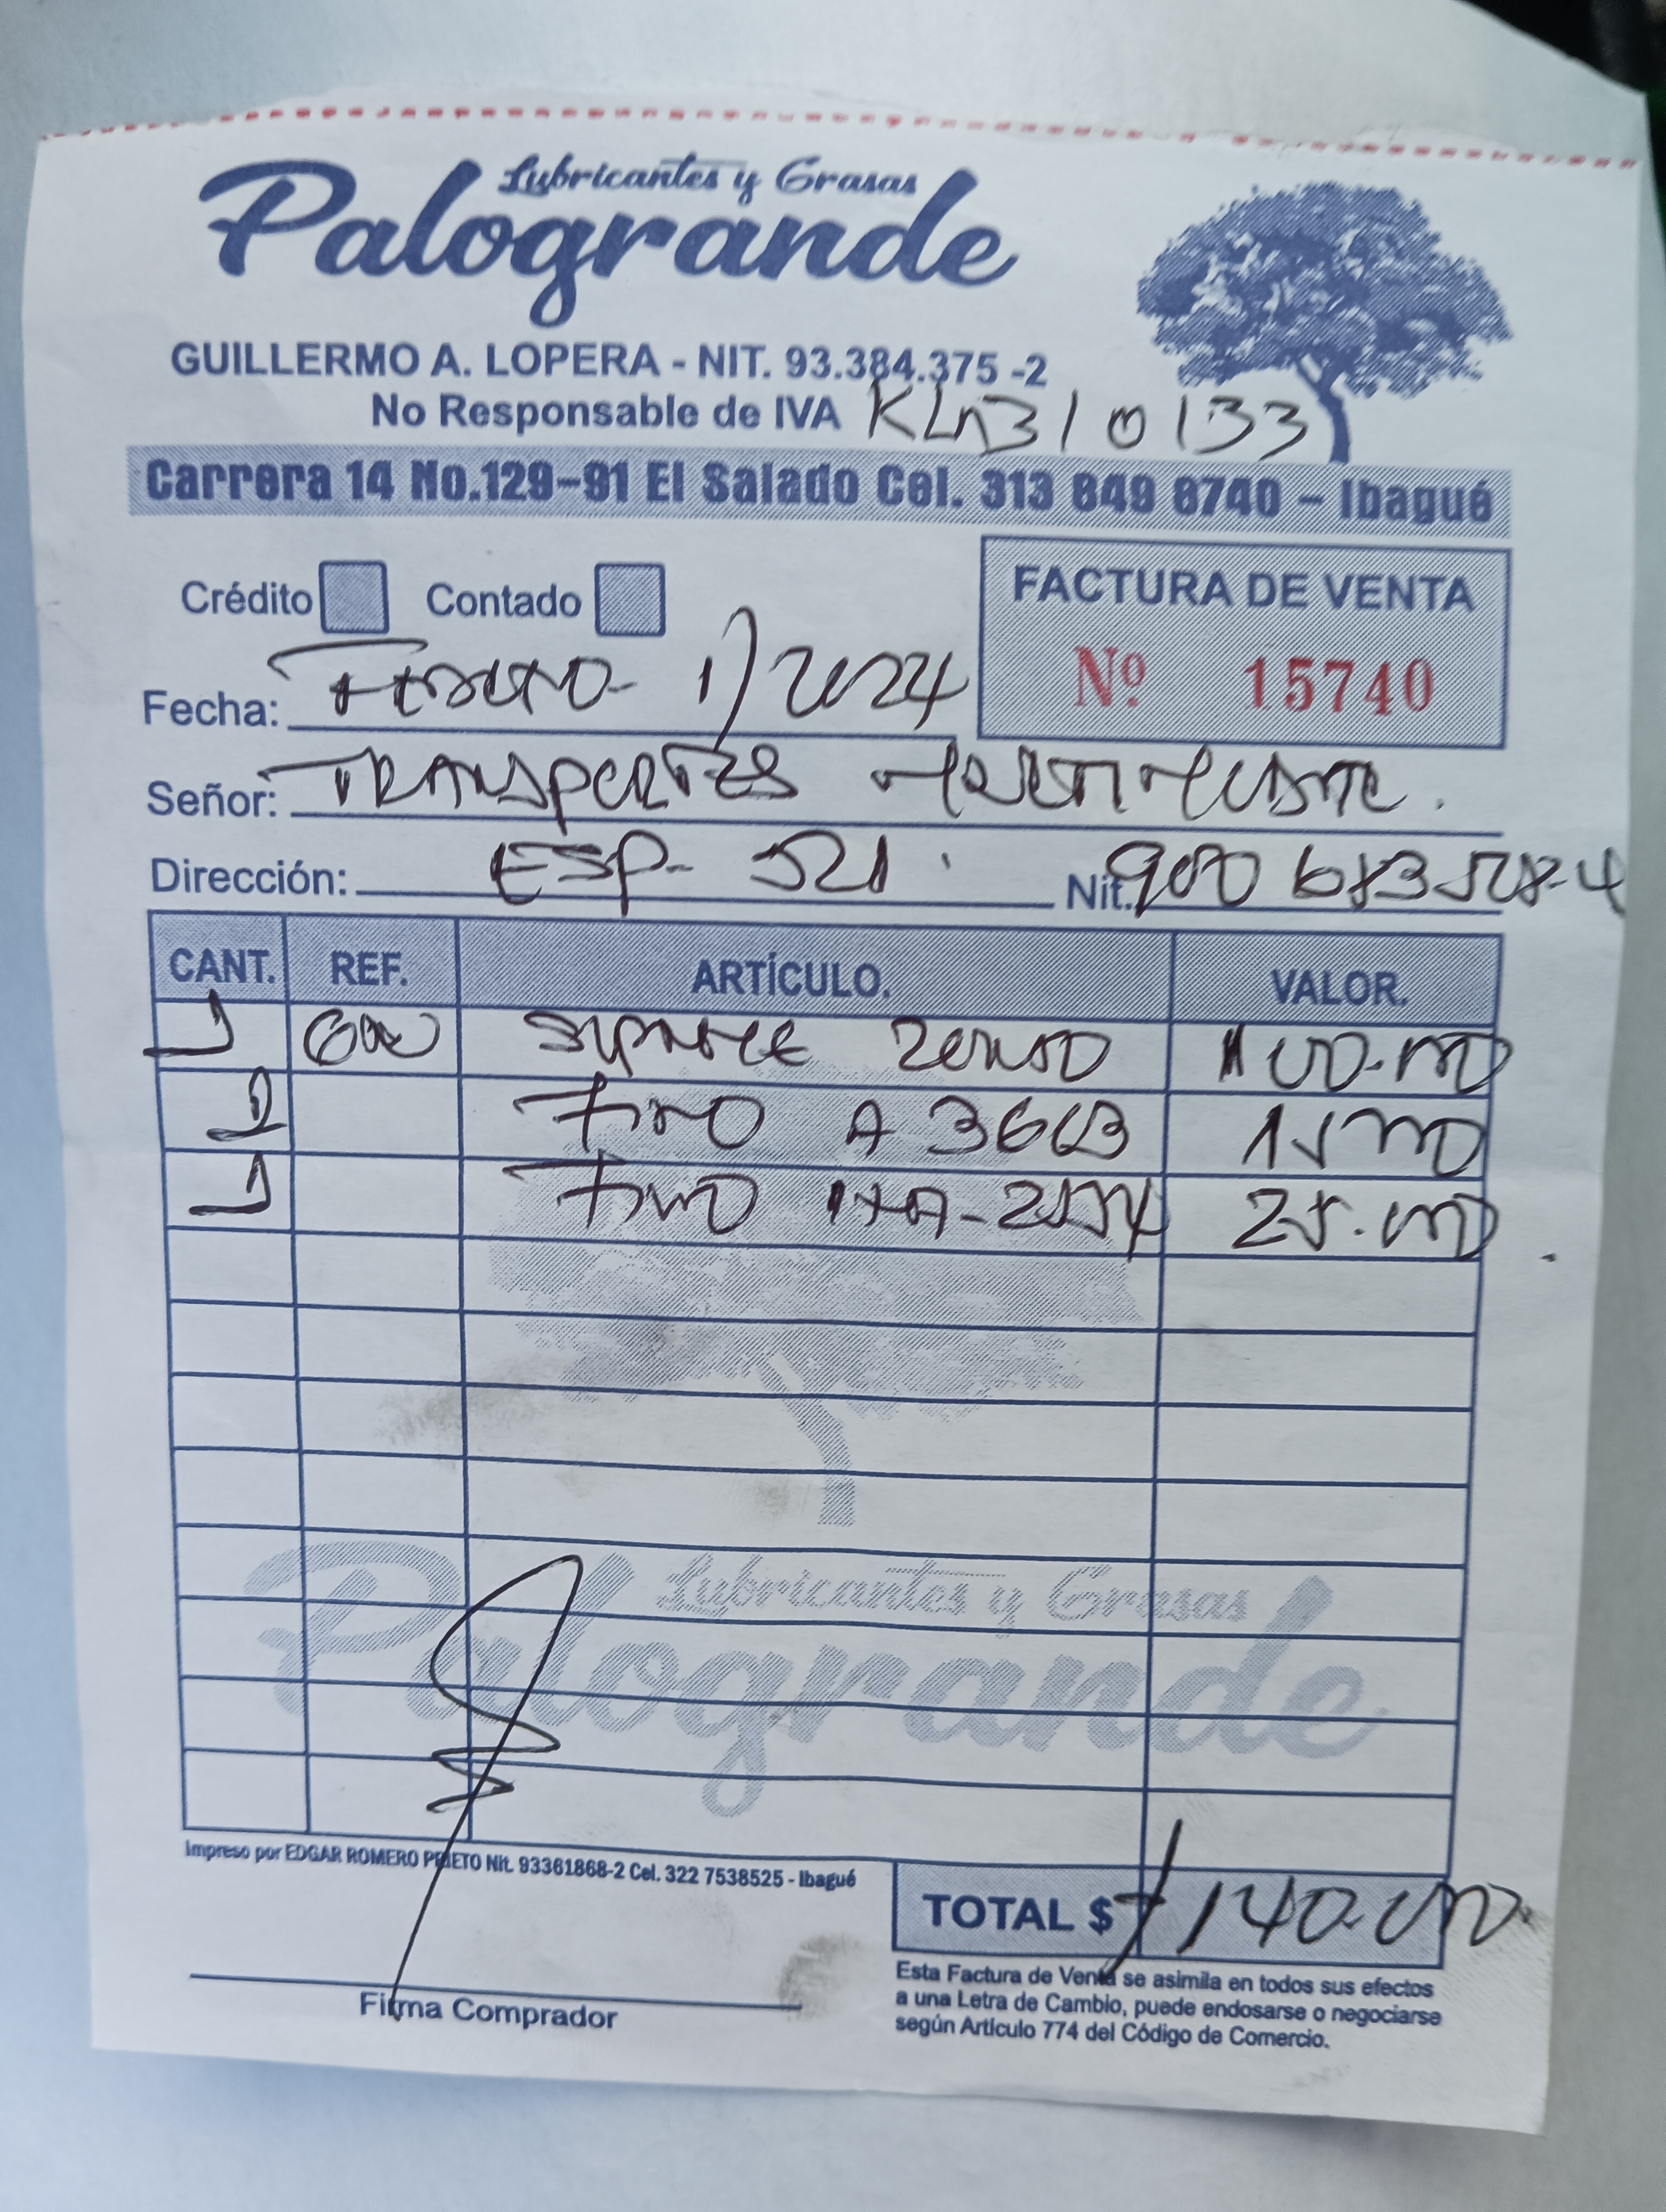 Lubricantes y Grasas
Palogrande
GUILLERMO A. LOPERA - NIT. 93.384.375 -2
No Responsable de IVA
Carrera 14 No.129-91 El Salado Cel. 313 849 8740 - Ibagué
Crédito Contado
FACTURA DE VENTA
Nº 15740
Fecha: 1/2024
Señor: TRANSPORTES
Dirección: ESP- 521 Nit. 900 683 528-4
CANT. REF. ARTÍCULO. VALOR.
1
2 A 3663
1 25.000
Lubricantes y Grasas
Palogrande
Impreso por EDGAR ROMERO PRIETO Nit. 93361868-2 Cel. 322 7538525 - Ibagué
TOTAL $ 140.000
Firma Comprador
Esta Factura de Venta se asimila en todos sus efectos
a una Letra de Cambio, puede endosarse o negociarse
según Artículo 774 del Código de Comercio.